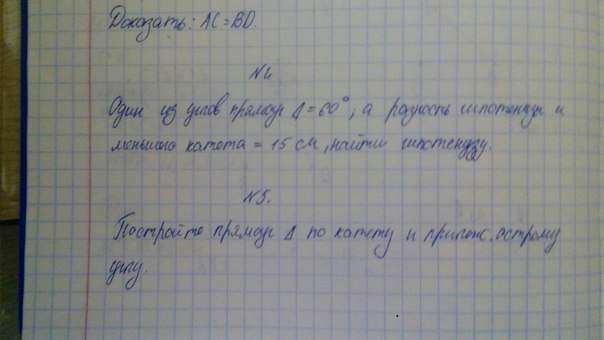 Доказать: AC=BD.
N4
Один из углов прямоуг Δ=60°, а разность гипотенузы и
меньшего катета = 15 см, найти гипотенузу.
N5.
Постройте прямоуг Δ по катету и прилеж. острому
углу.